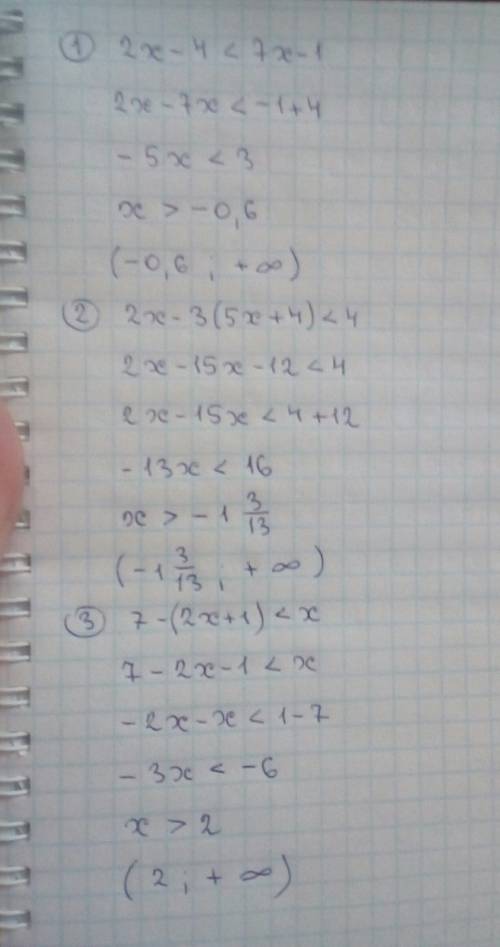 ① 2x - 4 < 7x - 1
2x - 7x < -1 + 4
- 5x < 3
x > -0,6
(-0,6 ; +∞)
② 2x - 3(5x + 4) < 4
2x - 15x - 12 < 4
2x - 15x < 4 + 12
- 13x < 16
x > -1 3/13
(-1 3/13 ; +∞)
③ 7 - (2x + 1) < x
7 - 2x - 1 < x
- 2x - x < 1 - 7
- 3x < -6
x > 2
(2 ; +∞)